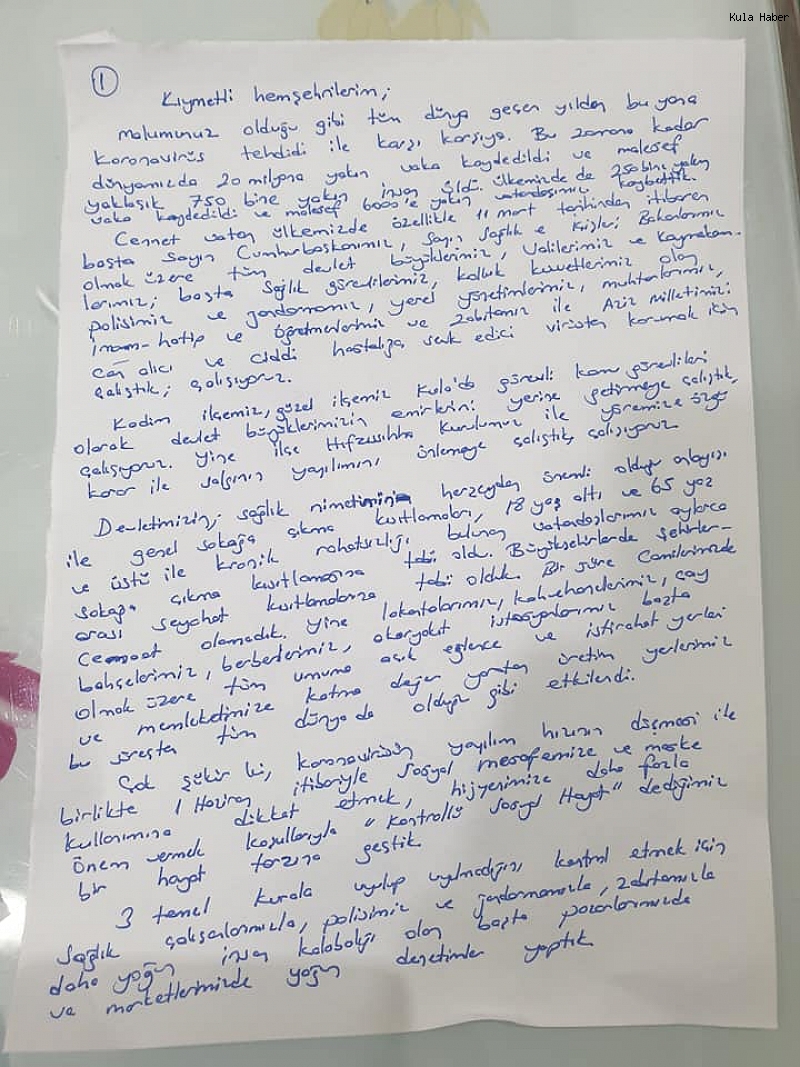 Kula Haber
1
Kıymetli hemşehrilerim;
malumunuz olduğu gibi tüm dünya geçen yıldan bu yana
Koronavirüs tehdidi ile karşı karşıya. Bu zamana kadar
dünyamızda 20 milyona yakın vaka kaydedildi ve malesef
yaklaşık 750 bine yakın insan öldü. ülkemizde de 250 bine yakın
vaka kaydedildi ve malesef 6000'e yakın vatandaşımız kaybettik.
Cennet vatan ülkemizde özellikle 11 mart tarihinden itibaren
başta Sayın Cumhurbaşkanımız, Sayın Sağlık e İçişleri Bakanlarımız
olmak üzere tüm devlet büyüklerimiz, Valilerimiz ve Kaymakam-
larımız; başta Sağlık görevlilerimiz, kolluk kuvvetlerimiz olan
polisimiz ve jandarmamız, yerel yönetimlerimiz, muhtarlarımız,
imam-hatip ve öğretmenlerimiz ve zabıtamız ile Aziz milletimizi
can alıcı ve ciddi hastalığa sevk edici virüsten korumak için
çalıştık; çalışıyoruz.
Kadim ilçemiz, güzel ilçemiz Kula'da görevli kamu görevlileri
olarak devlet büyüklerimizin emirlerini yerine getirmeye çalıştık,
çalışıyoruz. Yine ilçe Hıfzıssıhha Kurulumuz ile yöremize özgü
karar ile salgının yayılımını önlemeye çalıştık, çalışıyoruz
Devletimizin; sağlık nimetinin herşeyden önemli olduğu anlayışı
ile genel sokağa çıkma kısıtlamaları, 18 yaş altı ve 65 yaş
ve üstü ile kronik rahatsızlığı bulunan vatandaşlarımız aylarca
sokağa çıkma kısıtlamasına tabi oldu. Büyükşehirlerde şehirler-
arası seyahat kısıtlamalarına tabi olduk. Bir süre Camilerimizde
Cemaat olamadık. Yine lokantalarımız, kahvehanelerimiz, çay
bahçelerimiz, berberlerimiz, akaryakıt istasyonlarımız başta
olmak üzere tüm umuma açık eğlence ve istirahat yerleri
ve memleketimize katma değer yaratan üretim yerlerimiz
bu süreçten tüm dünyada olduğu gibi etkilendi.
Çok şükür ki, koronavirüsün yayılım hızının düşmesi ile
birlikte 1 Haziran itibariyle sosyal mesafemize ve maske
kullanımına dikkat etmek, hijyenimize daha fazla
önem vermek koşullarıyla "Kontrollü Sosyal Hayat" dediğimiz
bir hayat tarzına geçtik.
3 temel kurala uyulup uyulmadığını kontrol etmek için
Sağlık çalışanlarımızla, polisimiz ve jandarmamızla, zabıtamızla
daha yoğun insan kalabalığı olan başta pazarlarımızda
ve marketlerimizde yoğun denetimler yaptık